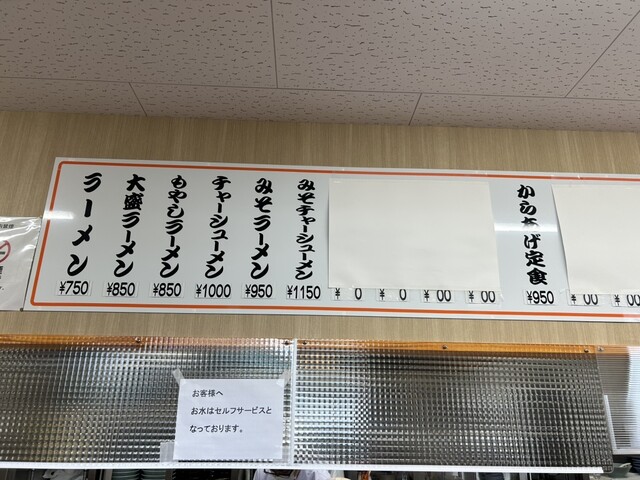 ラーメン
¥750
大盛ラーメン
¥850
もやしラーメン
¥850
チャーシューメン
¥1000
みそラーメン
¥950
みそチャーシューメン
¥1150
¥ 0
¥ 0
¥ 00
¥ 00
からあげ定食
¥950
¥ 00
¥ 00
お客様へ
お水はセルフサービスと
なっております。